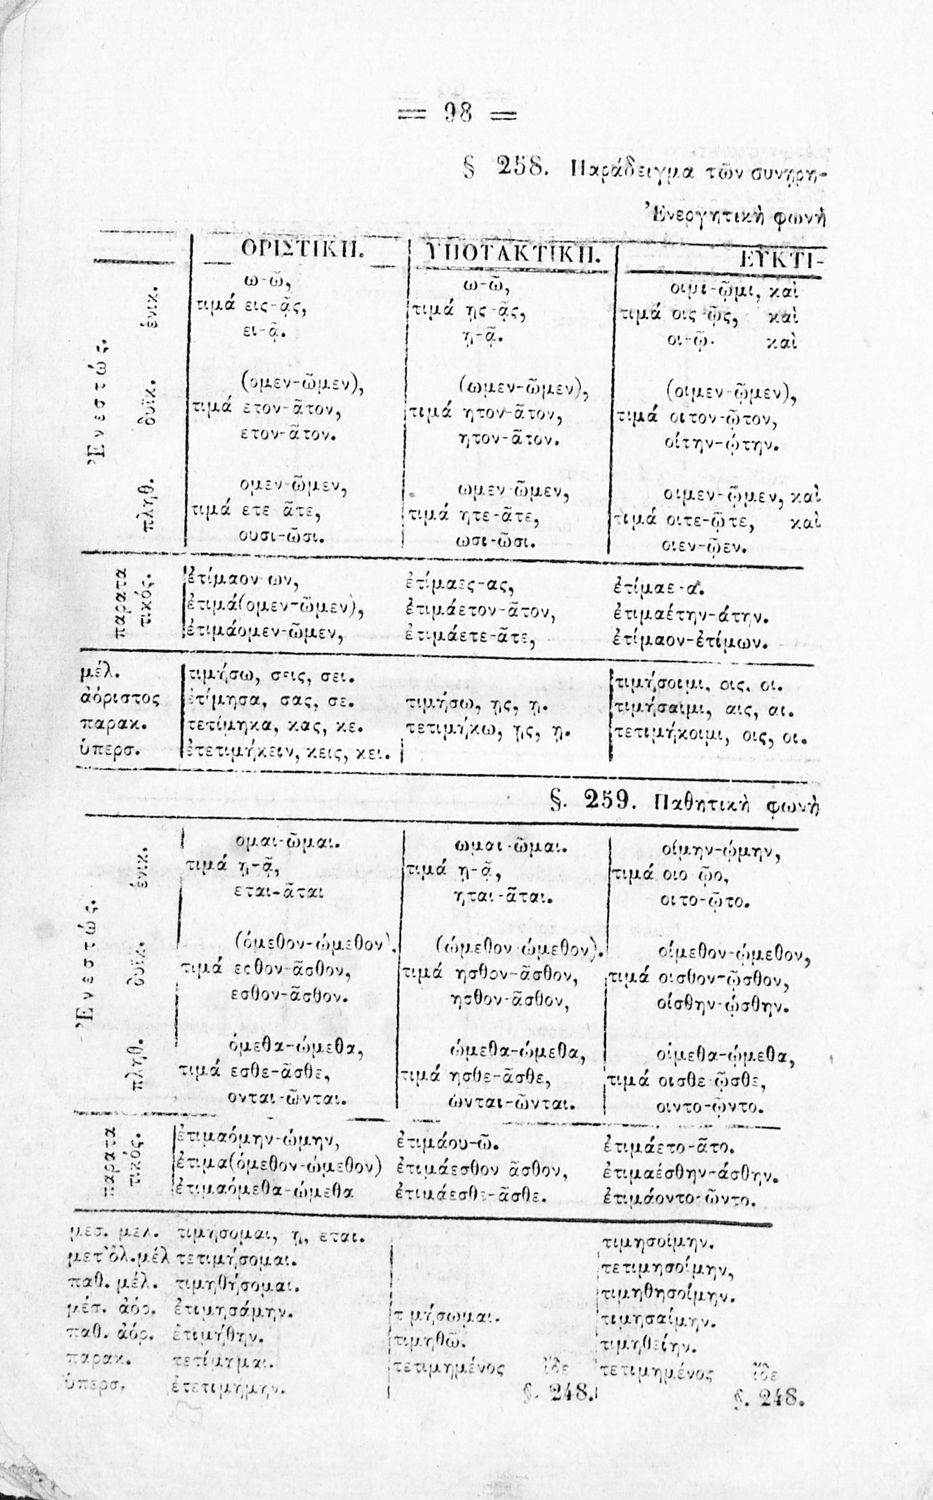 = 98 =
§ 258. Παράδειγμα τῶν συνῃρη-
Ἐνεργητικὴ φωνὴ
ΟΡΙΣΤΙΚΗ. ΥΠΟΤΑΚΤΙΚΗ. ΕΥΚΤΙ-
Ἐνεστώς.
ἑνικ.
ω-ῶ, ω-ῶ, οιμι-ῷμι, καὶ
τιμά εις-ᾷς, τιμά ῃς-ᾷς, τιμά οις-ῷς, καὶ
ει-ᾷ. ῃ-ᾷ. οι-ῷ. καὶ
δυϊκ.
(ομεν-ῶμεν), (ωμεν-ῶμεν), (οιμεν-ῷμεν),
τιμά ετον-ᾶτον, τιμά ητον-ᾶτον, τιμά οιτον-ῷτον,
ετον-ᾶτον. ητον-ᾶτον. οίτην-ῴτην.
πληθ.
ομεν-ῶμεν, ωμεν-ῶμεν, οιμεν-ῷμεν, καὶ
τιμά ετε-ᾶτε, τιμά ητε-ᾶτε, τιμά οιτε-ῷτε, καὶ
ουσι-ῶσι. ωσι-ῶσι. οιεν-ῷεν.
παρατα
τικός.
ἐτίμαον-ων, ἐτίμαες-ας, ἐτίμαε-α.
ἐτιμά(ομεν-ῶμεν), ἐτιμάετον-ᾶτον, ἐτιμαέτην-άτην.
ἐτιμάομεν-ῶμεν, ἐτιμάετε-ᾶτε, ἐτίμαον-ἐτίμων.
μέλ. τιμήσω, σεις, σει. τιμήσοιμι, οις, οι.
ἀόριστος ἐτίμησα, σας, σε. τιμήσω, ῃς, ῃ. τιμήσαιμι, αις, αι.
παρακ. τετίμηκα, κας, κε. τετιμήκω, ῃς, ῃ. τετιμήκοιμι, οις, οι.
ὑπερσ. ἐτετιμήκειν, κεις, κει.
§. 259. Παθητικὴ φωνὴ
Ἐνεστώς.
ἑνικ.
ομαι-ῶμαι. ωμαι-ῶμαι. οίμην-ῴμην,
τιμά ῃ-ᾷ, τιμά ῃ-ᾷ, τιμά οιο ῷο,
εται-ᾶται ηται-ᾶται. οιτο-ῷτο.
δυϊκ.
(όμεθον-ώμεθον). (ώμεθον-ώμεθον). οίμεθον-ῴμεθον,
τιμά εσθον-ᾶσθον, τιμά ησθον-ᾶσθον, τιμά οισθον-ῷσθον,
εσθον-ᾶσθον. ησθον-ᾶσθον, οίσθην-ῴσθην.
πληθ.
όμεθα-ώμεθα, ώμεθα-ώμεθα, οίμεθα-ῴμεθα,
τιμά εσθε-ᾶσθε, τιμά ησθε-ᾶσθε, τιμά οισθε-ῷσθε,
ονται-ῶνται. ώνται-ῶνται. οιντο-ῷντο.
παρατα
τικός.
ἐτιμαόμην-ώμην, ἐτιμάου-ῶ. ἐτιμάετο-ᾶτο.
ἐτιμα(όμεθον-ώμεθον) ἐτιμάεσθον ᾶσθον, ἐτιμαέσθην-άσθην.
ἐτιμαόμεθα-ώμεθα ἐτιμάεσθε-ᾶσθε. ἐτιμάοντο-ῶντο.
μεσ. μελ. τιμήσομαι, ῃ, εται. τιμησοίμην.
μετ'ὀλ.μέλ τετιμήσομαι. τετιμησοίμην,
παθ. μέλ. τιμηθήσομαι. τιμηθησοίμην.
μέσ. ἀόρ. ἐτιμησάμην. τιμήσωμαι. τιμησαίμην.
παθ. ἀόρ. ἐτιμήθην. τιμηθῶ. τιμηθείην.
παρακ. τετίμημαι. τετιμημένος ἴδε τετιμημένος ἴδε
ὑπερσ. ἐτετιμήμην. §. 248. §. 248.